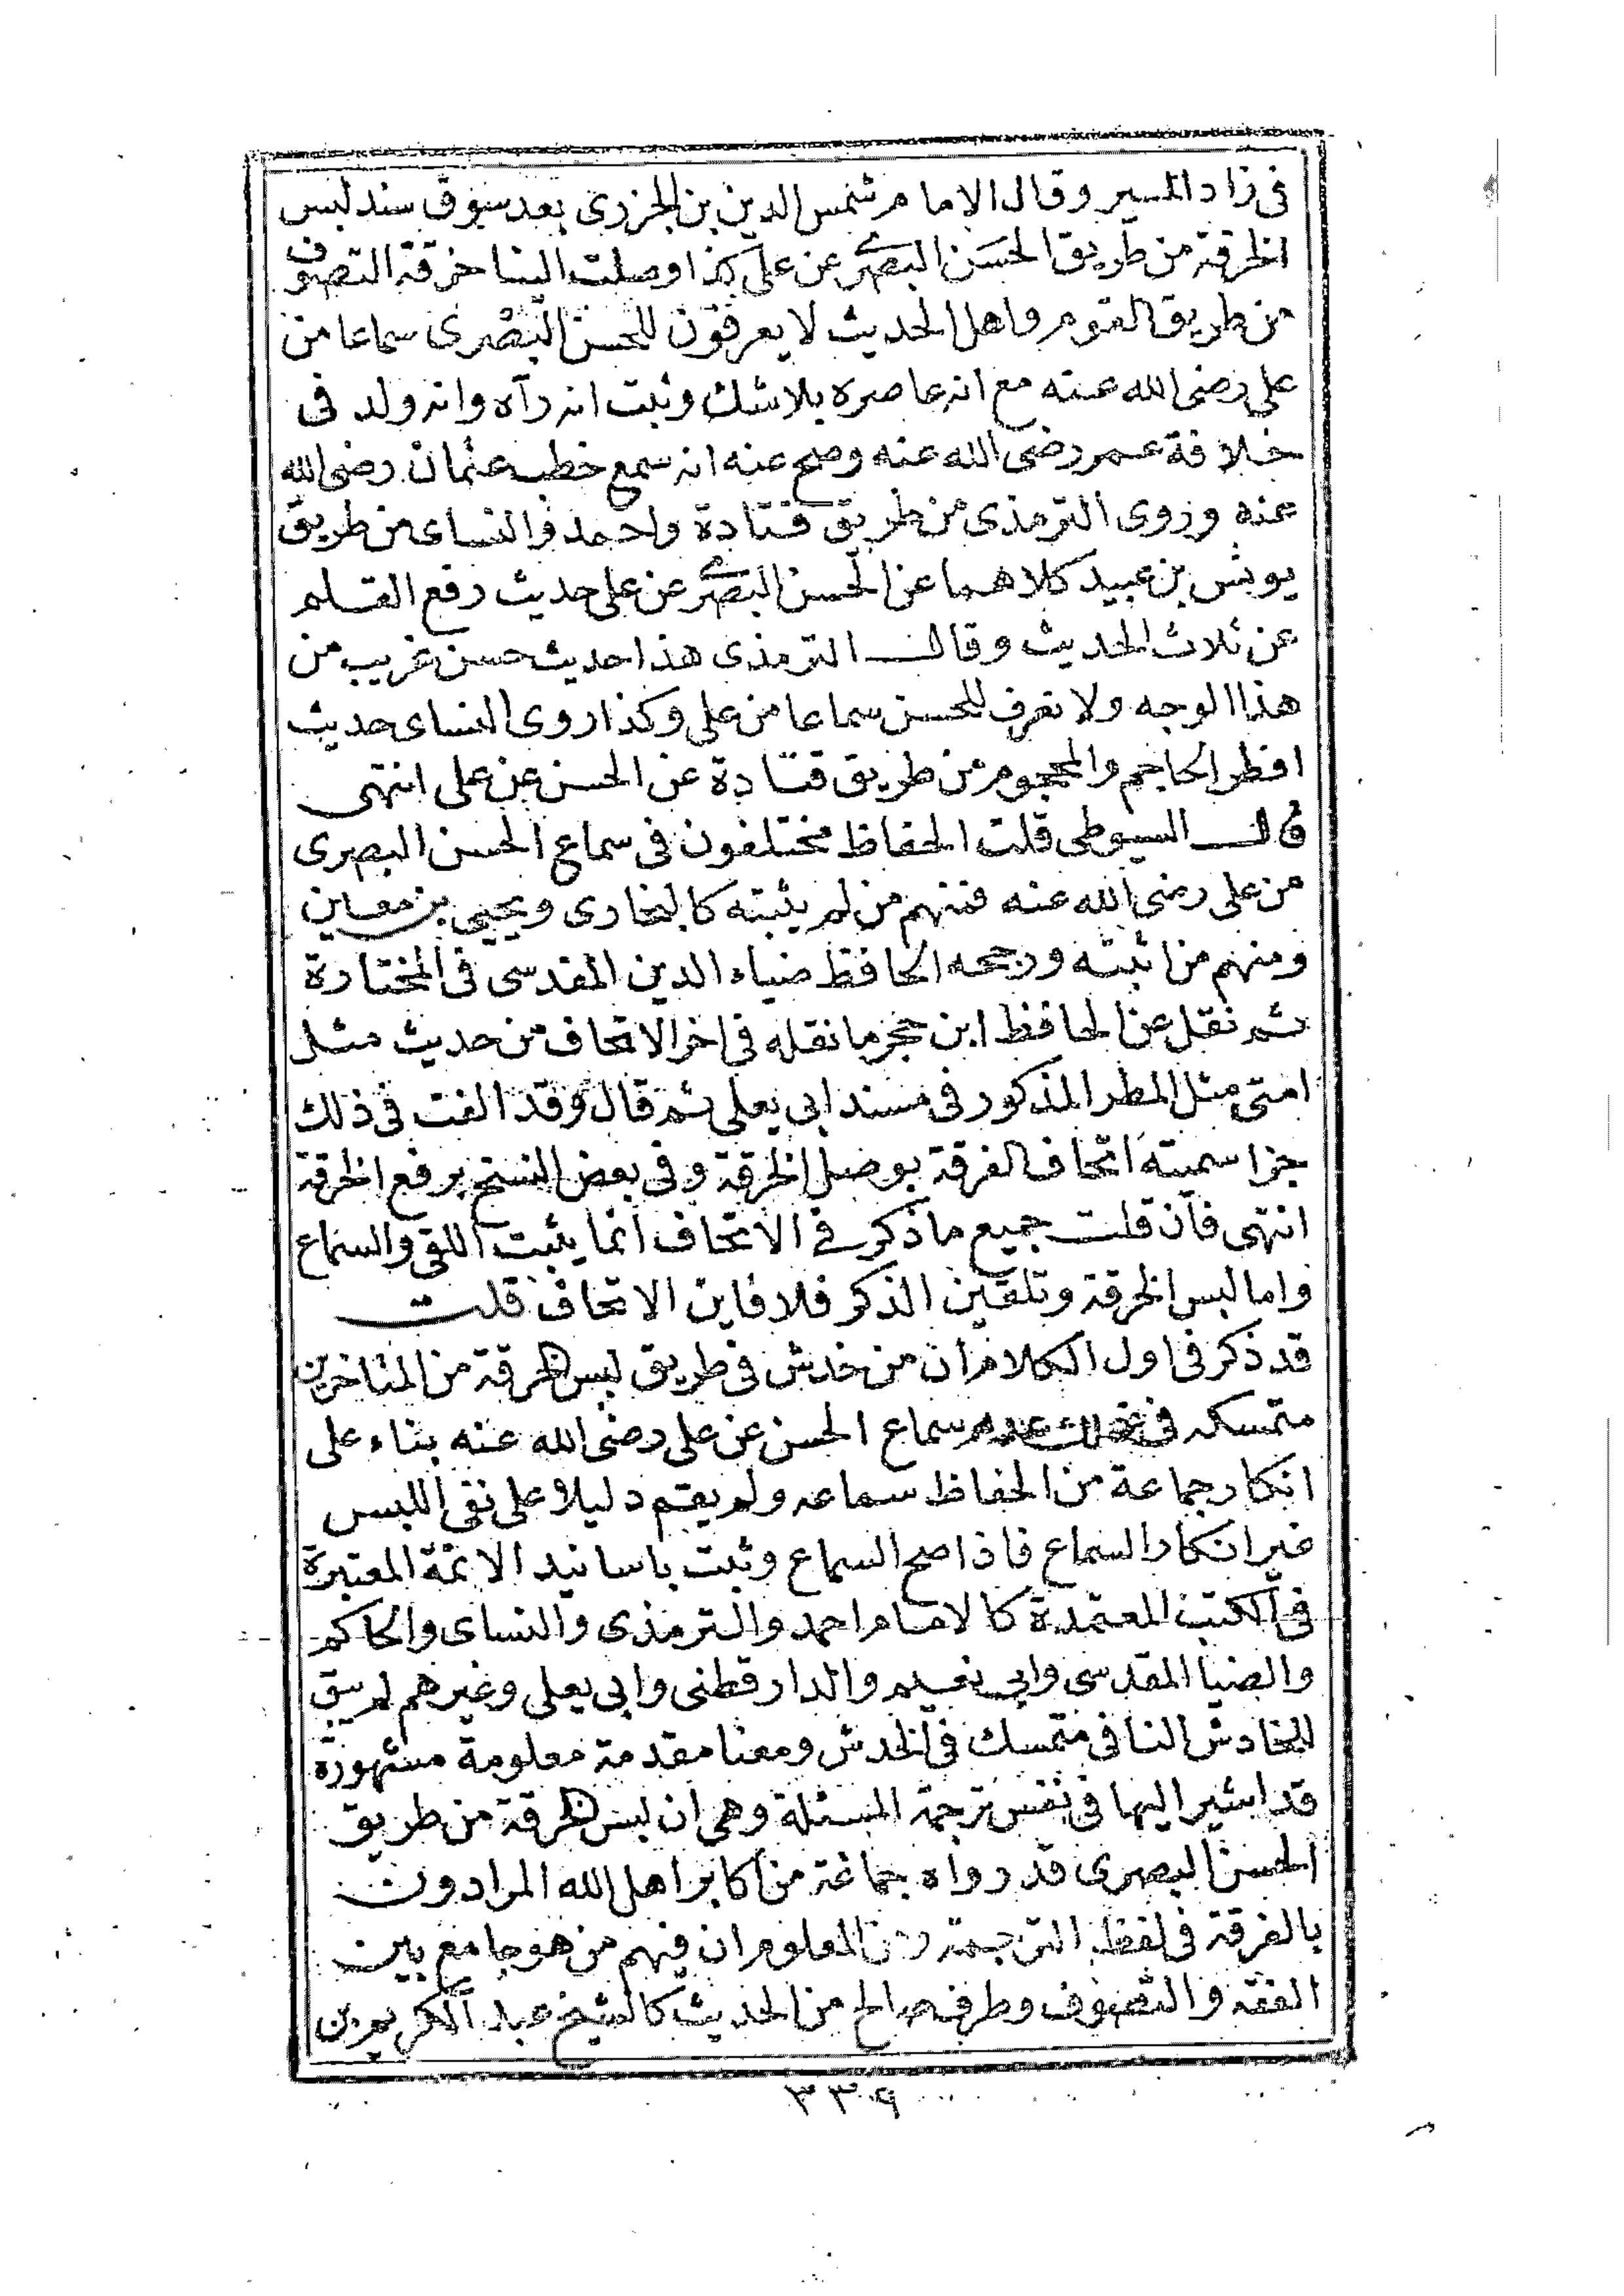 فى زاد المسير وقال الامام شمس الدين بن الجزرى بعد سوق سند لبس
الخرقة من طريق الحسن البصرى عن على كذا وصلت الينا خرقة التصوف
من طريق القوم واهل الحديث لا يعرفون للحسن البصرى سماعا من
على رضى الله عنه مع انه عاصره بلا شك وثبت انه رآه وانه ولد فى
خلافة عمر رضى الله عنه وصح عنه انه سمع خطبه عثمان رضى الله
عنه وروى الترمذى من طريق قتادة واحمد والنساى من طريق
يونس بن عبيد كلاهما عن الحسن البصرى عن على حديث رفع القلم
عن ثلاث الحديث وقال الترمذى هذا حديث حسن غريب من
هذا الوجه ولا نعرف للحسن سماعا من على وكذا روى النساى حديث
افطر الحاجم والمحجوم من طريق قتادة عن الحسن عن على انتهى
قال السيوطى قلت الحفاظ مختلفون فى سماع الحسن البصرى
من على رضى الله عنه فمنهم من لم يثبته كالبخارى ويحيى بن معاين
ومنهم من اثبته ورجحه الحافظ ضياء الدين المقدسى فى المختارة
ثم نقل عن الحافظ ابن حجر ما نقله فى اخر الاتحاف من حديث مثل
امتى مثل المطر المذكور فى مسند ابى يعلى ثم قال وقد الفت فى ذلك
جزا سميته اتحاف الفرقة بوصل الخرقة وفى بعض النسخ برفع الخرقة
انتهى فان قلت جميع ما ذكر فى الاتحاف انما يثبت اللقى والسماع
واما لبس الخرقة وتلقين الذكر فلا فاين الاتحاف قلت
قد ذكر فى اول الكلام ان من خدش فى طريق لبس الخرقة من المتاخرين
متمسكه فى عدم سماع الحسن عن على رضى الله عنه بناء على
انكار جماعة من الحفاظ سماعه ولم يقم دليلا على نفى اللبس
غير انكار السماع فاذا صح السماع وثبت باسانيد الائمة المعتبرة
فى الكتب المعتمدة كالامام احمد والترمذى والنساى والحاكم
والضيا المقدسى وابى نعيم والدارقطنى وابى يعلى وغيرهم لم يبق
للخادش النافى متمسك فى الخدش ومعنا مقدمة معلومة مشهورة
قد اشير اليها فى نفس ترجمة المسئلة وهى ان لبس الخرقة من طريق
الحسن البصرى قد رواه جماعة من اكابر اهل الله المرادون
بالفرقة فى لفظ الترجمة ومن المعلوم ان فيهم من هو جامع بين
الفقه والتصوف وطرف صالح من الحديث كالشيخ عبد الكريم بن
٣٣٩